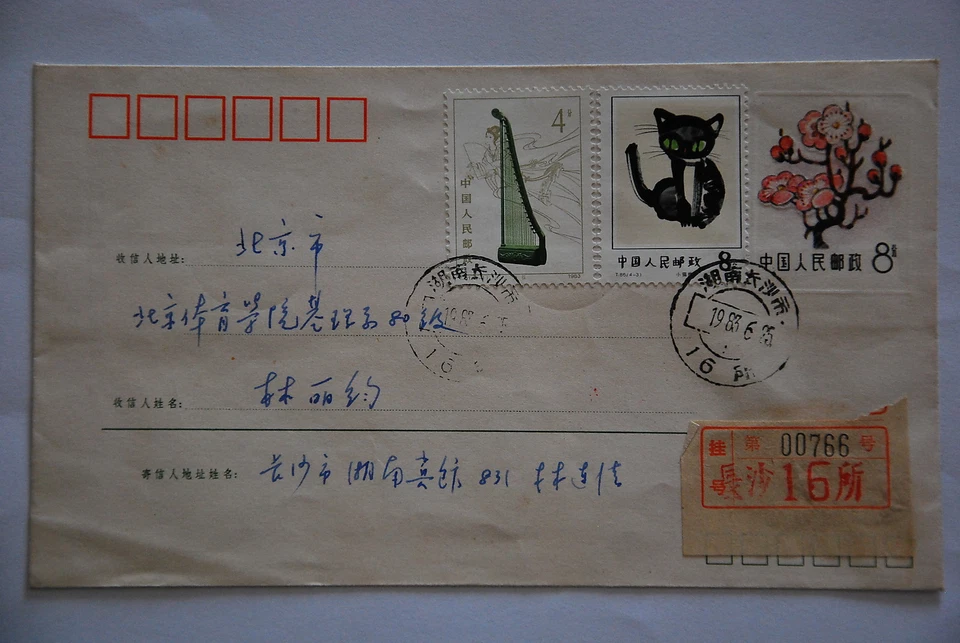 4分
中国人民邮政
中国人民邮政 8分
T.85(4-2)
中国人民邮政 8分
湖南长沙市
1983.6.
16
湖南长沙市
1983.6.25
16 所
收信人地址: 北京市
北京体育学院基理系80级
收信人姓名: 林丽钧
寄信人地址姓名: 长沙市 湖南宾馆 831 林连信
挂号 第 00766 号
长沙16所